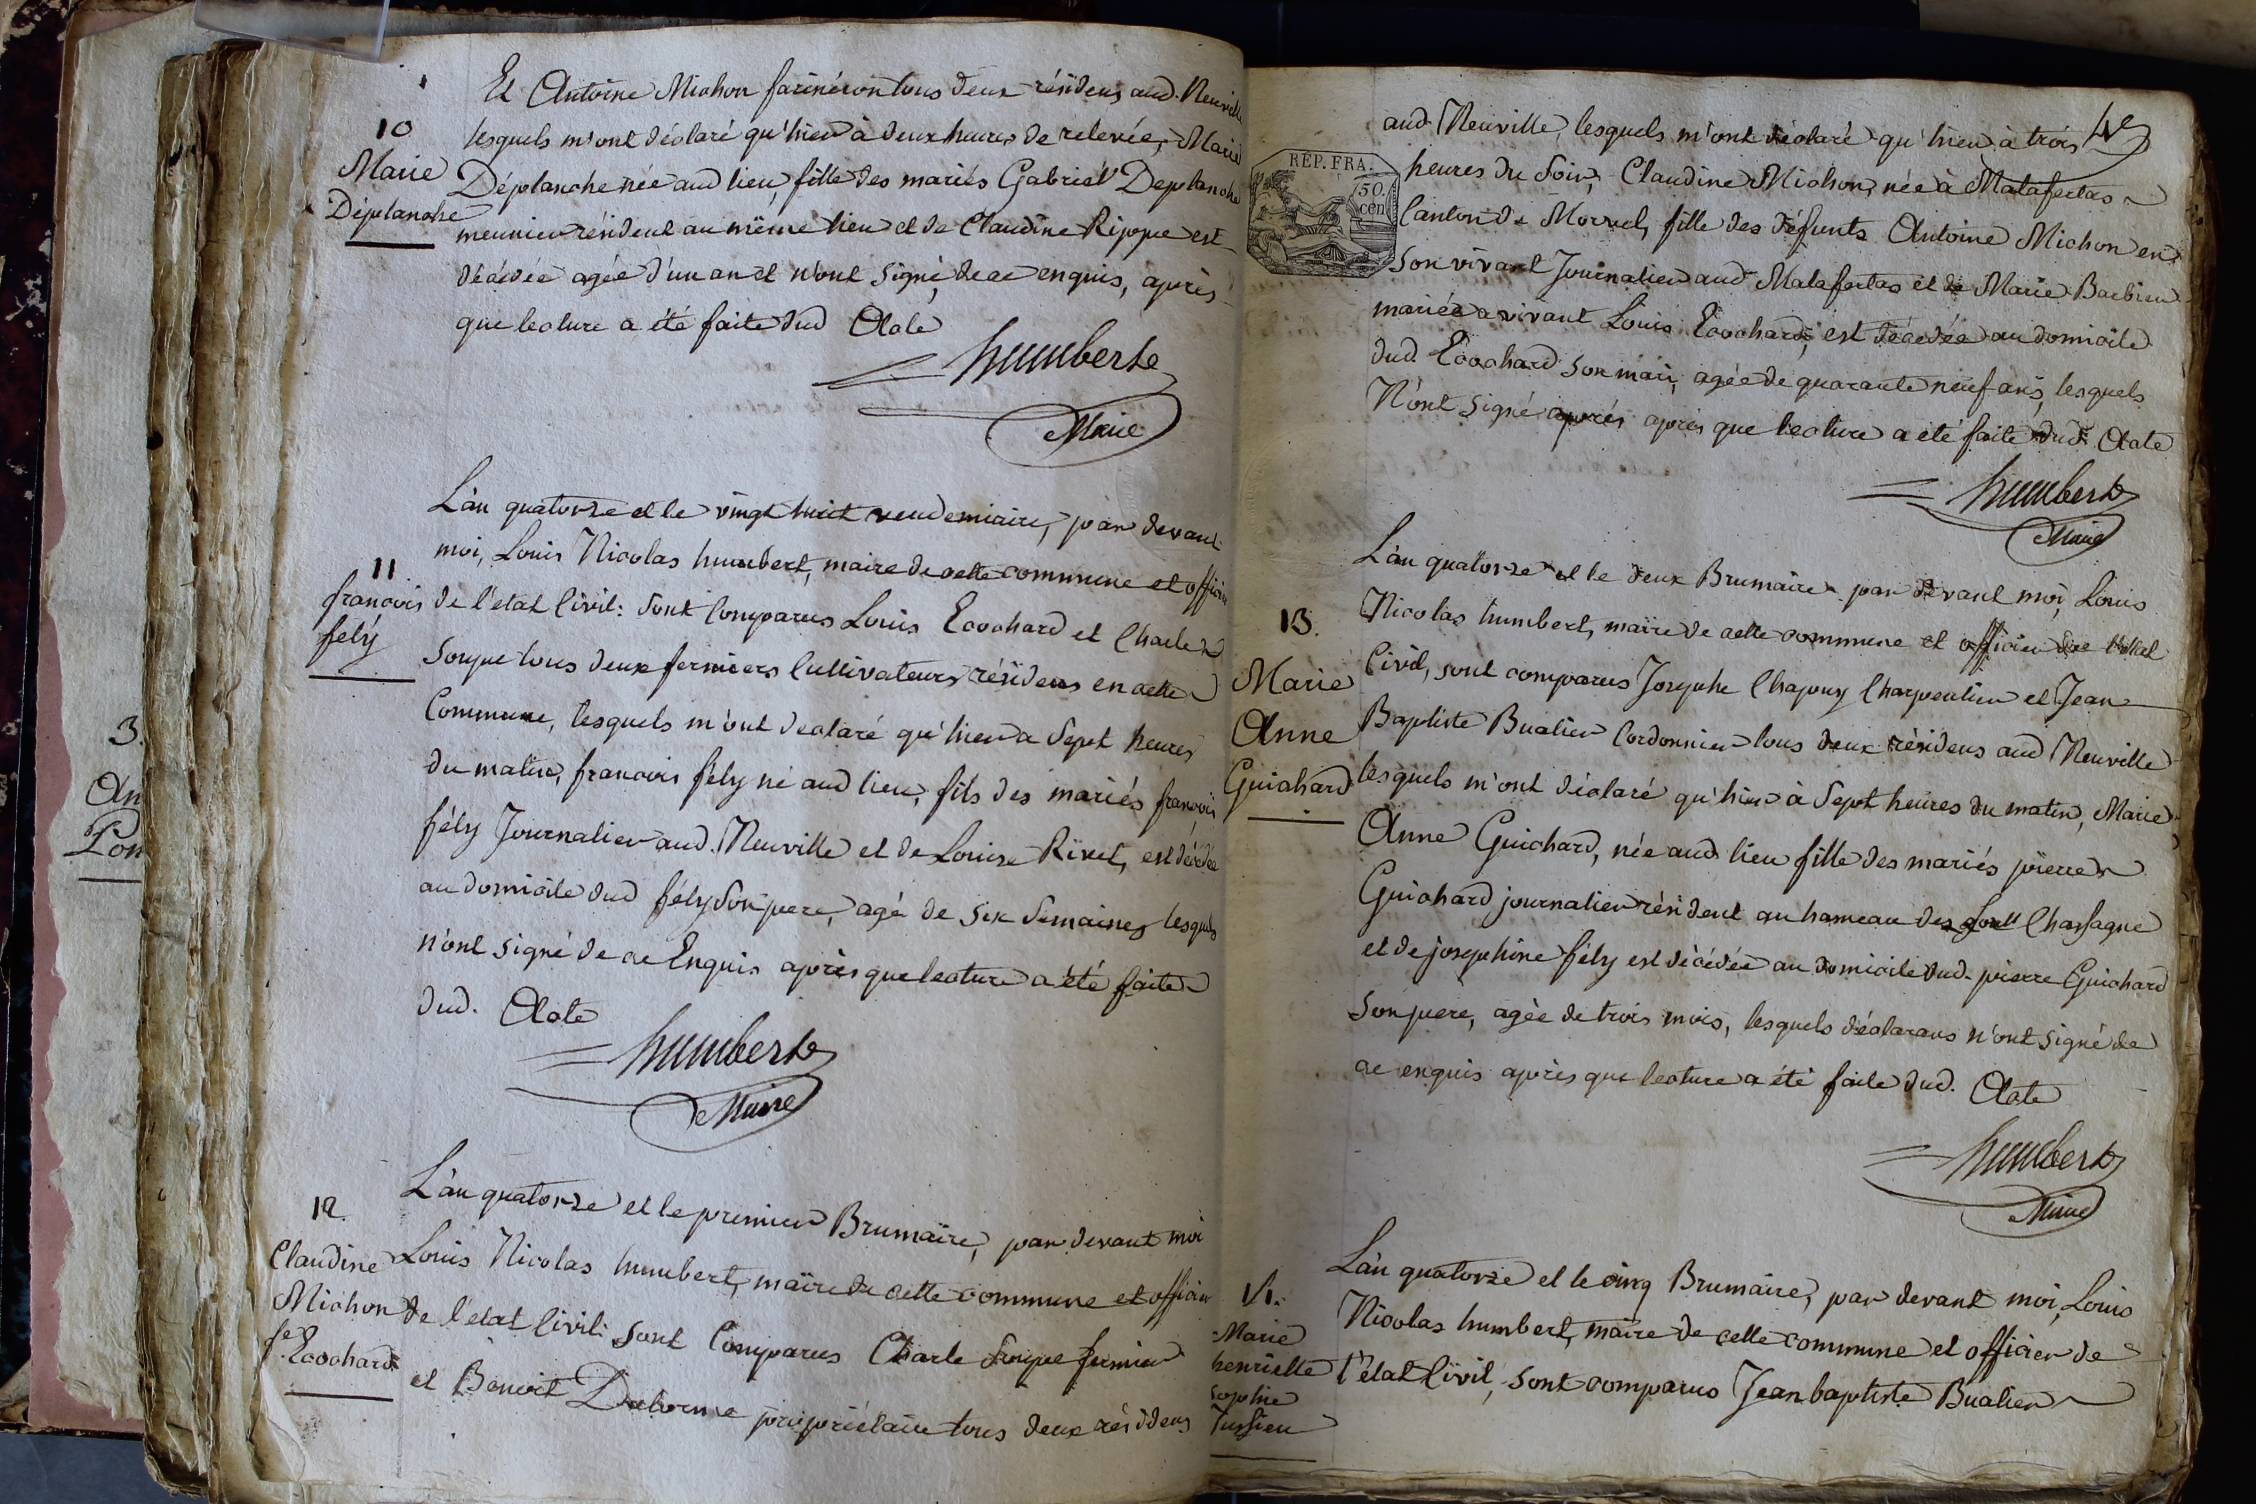 Et Antoine Michon farinéron tous deux résidens aud. Neuville
10
lesquels m'ont déclaré qu'hier à deux heures de relevée, Marie
Marie
Déplanche née aud lieu, fille des mariés Gabriel Deplanche
Déplanche
meunier résident au même lieu et de Claudine Rippe est
décédée agée d'un an et n'ont signé de ce enquis, après
que lecture a été faite dud Acte
humbert
Maire
L'an quatorze et le vingt huit vendemiaire, par devant
moi, Louis Nicolas humbert, maire de cette commune et officier
11
francois
fély
de l'etat Civil: sont Comparus Louis Ecochard et Charle
Soupe tous deux fermiers Cultivateurs résidens en cette
Commune, lesquels m'ont declaré qu'hier a Sept heures
du matin, francois fély né aud lieu, fils des mariés francois
fély Journalier aud. Neuville et de Louise Rivet, est décédé
au domicile dud fély son pere, agé de six Semaines lesquels
n'ont signé de ce Enquis après que lecture a été faite
dud. Acte
humbert
Maire
L'an quatorze et le premier Brumaire, par devant moi
12.
Claudine
Michon
fe. Ecochard
Louis Nicolas humbert, maire de cette commune et officier
de l'etat Civil: sont Comparus Charle Soupe fermier
et Benoit Delorme propriétaire tous deux résidens
3.
An
4e
REP. FRA.
50.
cen
aud Neuville, lesquels m'ont déclaré qu'hier à trois
heures du Soir, Claudine Michon, née à Malafretas
Canton de Montrevel, fille des défunts Antoine Michon en
son vivant Journalier aud Malafretas et de Marie Barbier
mariée a vivant Louis Ecochard, est décédée au domicile
dud Ecochard son mari, agée de quarante neuf ans, lesquels
N'ont signé après après que lecture a été faite dud. Acte
humbert
Maire
L'an quatorze et le deux Brumaire par devant moi, Louis
Nicolas humbert, maire de cette commune et officier de l'état
13.
Marie
Anne
Guichard
Civil, sont comparus Josephe Chapuy Charpentier et Jean
Baptiste Bualier Cordonnier tous deux résidens aud Neuville
lesquels m'ont déclaré qu'hier à Sept heures du matin, Marie
Anne Guichard, née aud lieu fille des mariés pierre
Guichard journalier résident au hameau des Chassagne
et de josephine fély est décédée au domicile dud. pierre Guichard
son pere, agée de trois mois, lesquels déclarans n'ont signé de
ce enquis après que lecture a été faite dud. Acte
humbert
Maire
L'an quatorze et le cinq Brumaire, par devant moi, Louis
14.
Marie
henriette
Sophie
Jussieu
Nicolas humbert, maire de cette commune et officier de
l'état Civil, sont comparus Jean baptiste Bualier